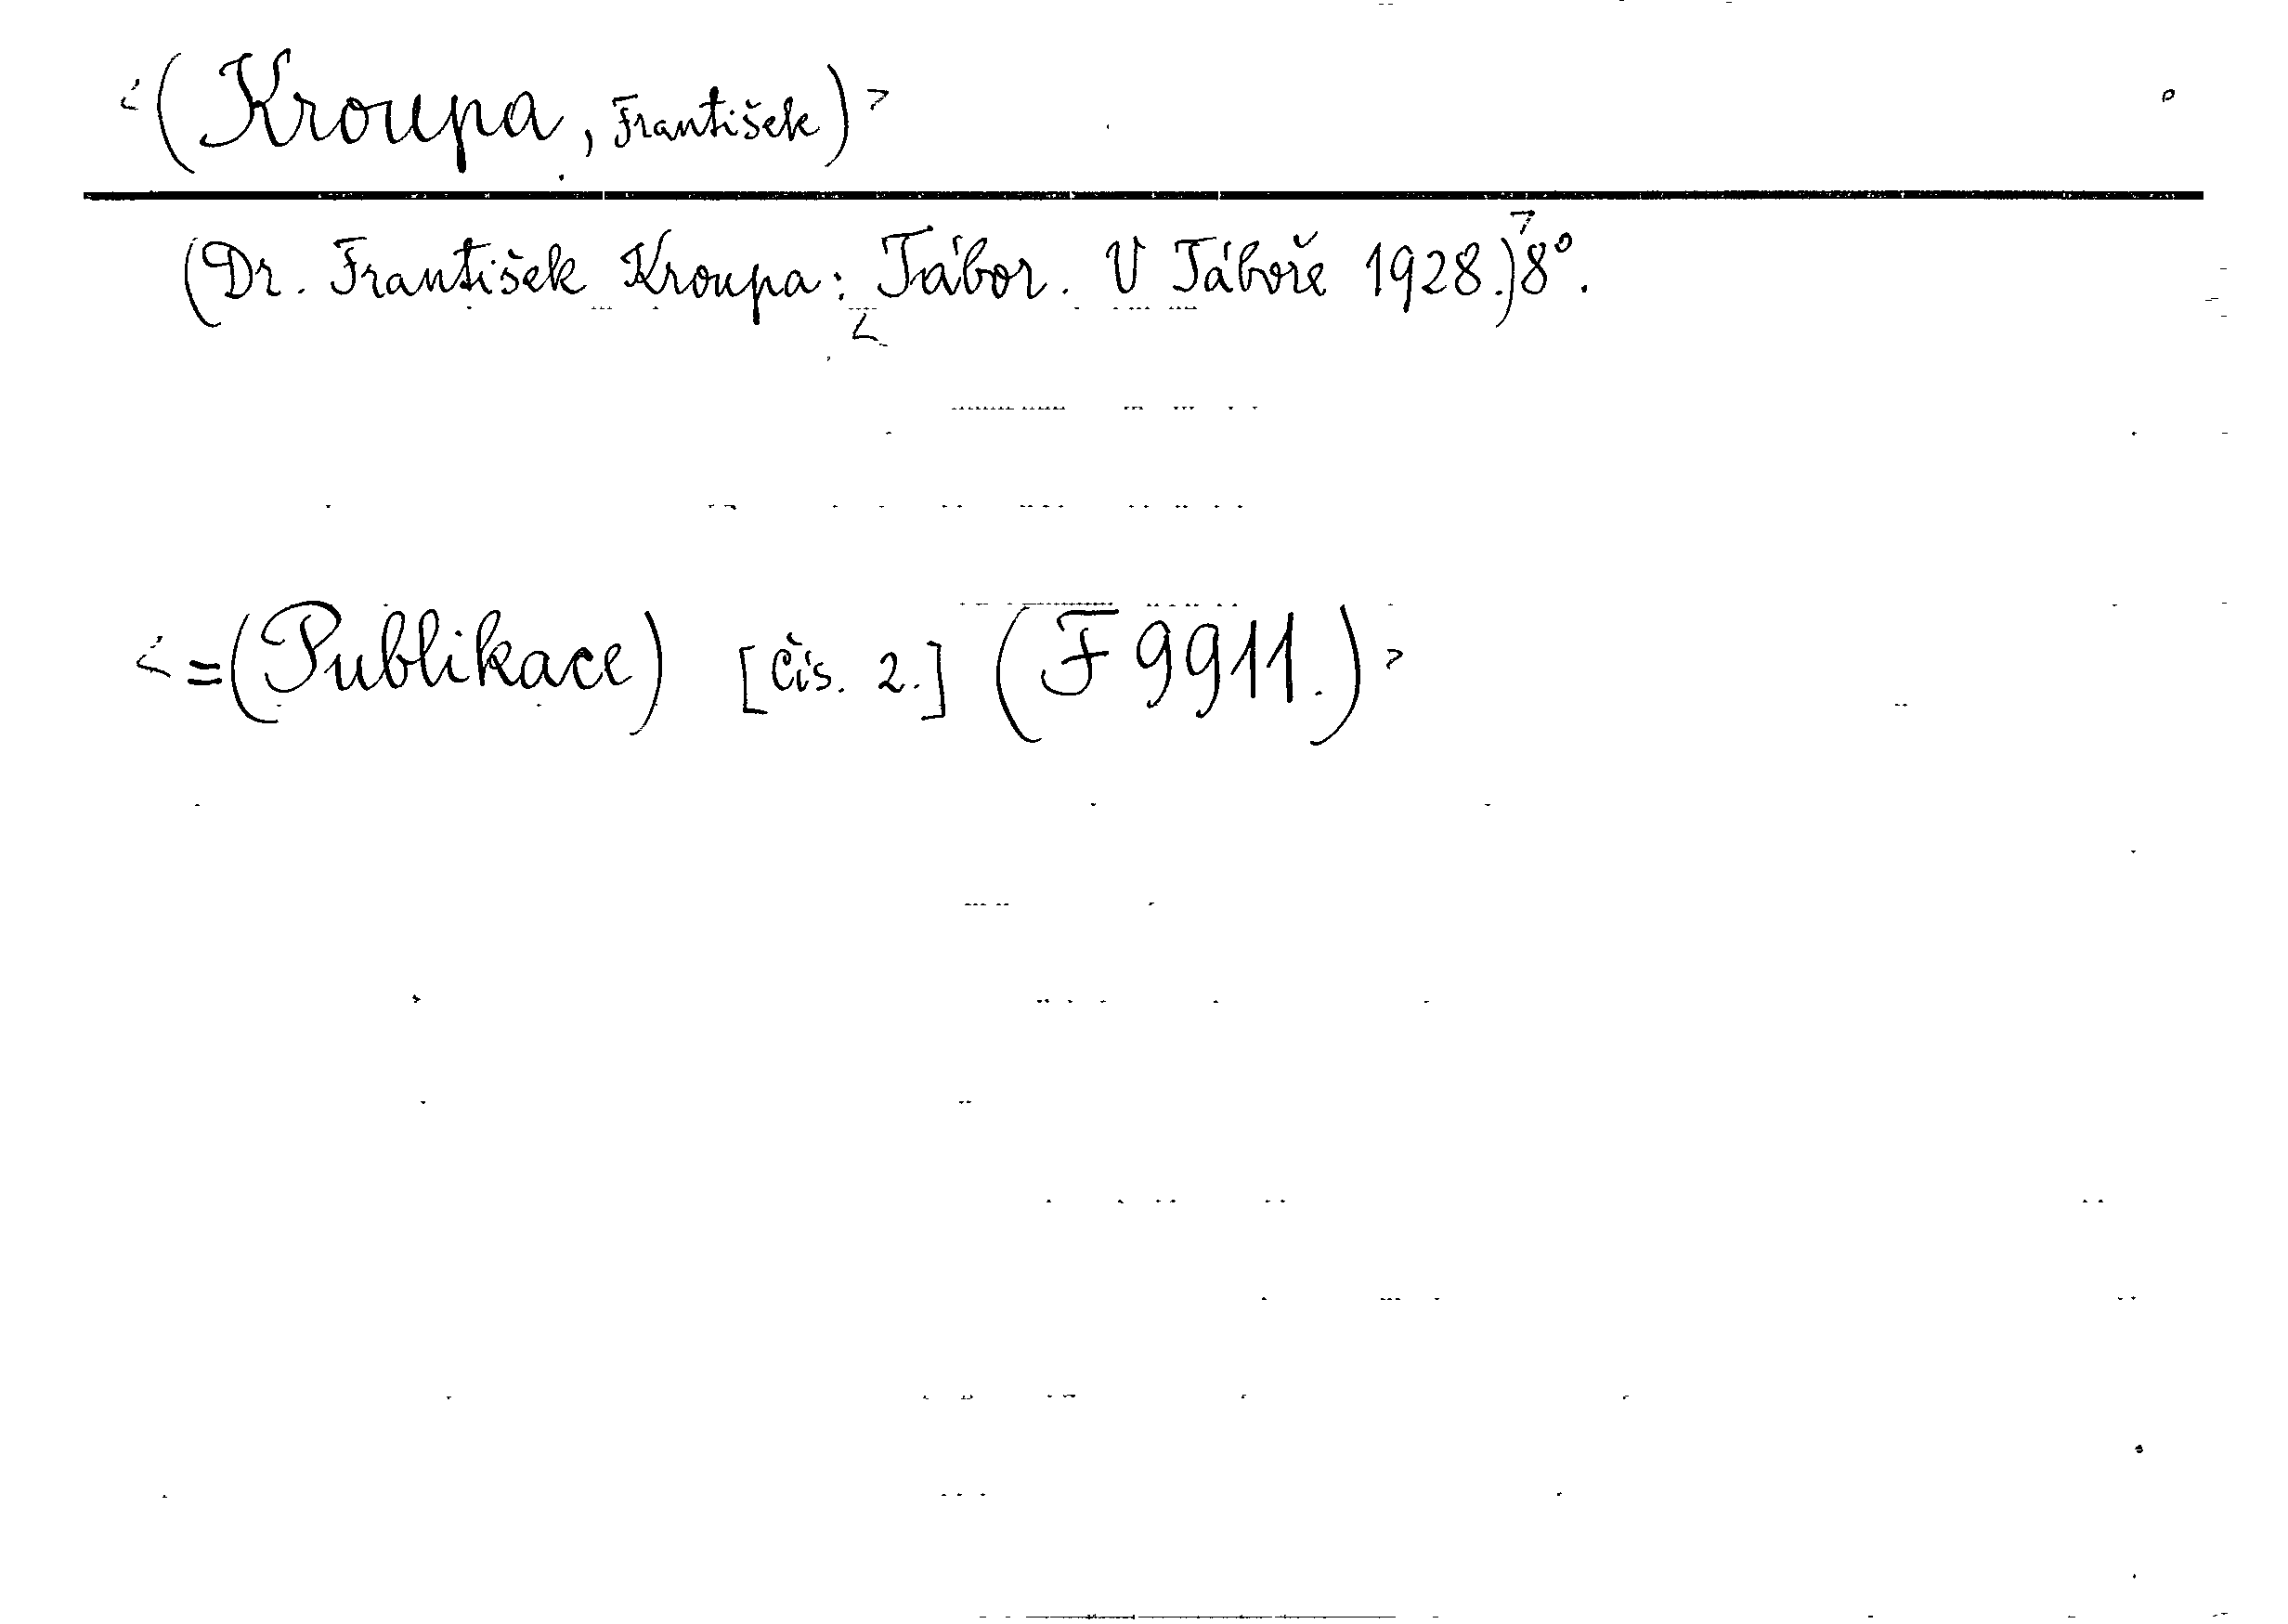 <(Kroupa, František)>
(Dr. František Kroupa: <Tábor. V Táboře 1928.)> 8°.
<=(Publikace) [čís. 2.] (F 9911.)>